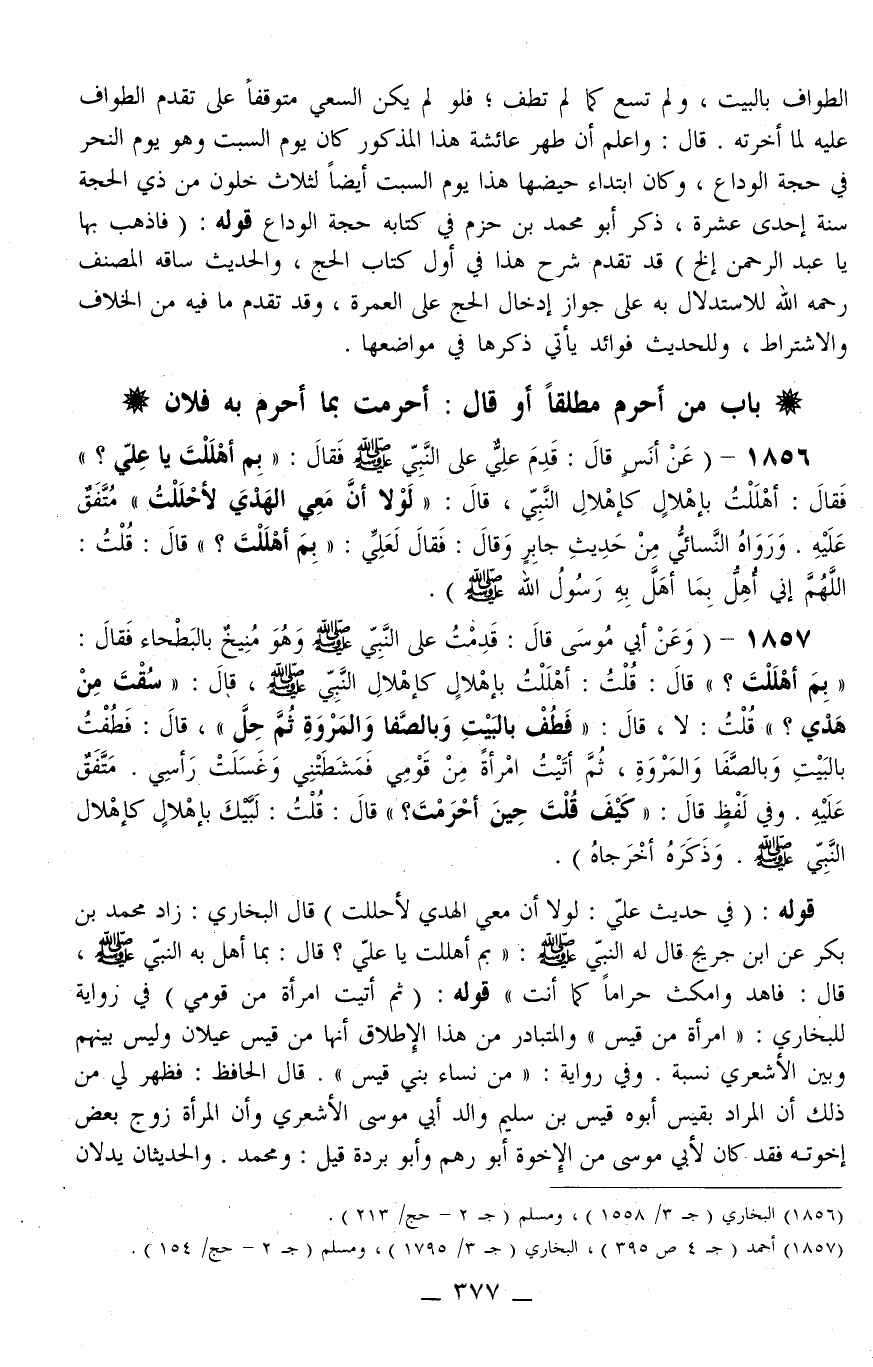 الطواف بالبيت ، ولم تسع كما لم تطف ؛ فلو لم يكن السعي متوقفاً على تقدم الطواف
عليه لما أخرته . قال : واعلم أن طهر عائشة هذا المذكور كان يوم السبت وهو يوم النحر
في حجة الوداع ، وكان ابتداء حيضها هذا يوم السبت أيضاً لثلاث خلون من ذي الحجة
سنة إحدى عشرة ، ذكر أبو محمد بن حزم في كتابه حجة الوداع قوله : ( فاذهب بها
يا عبد الرحمن إلخ ) قد تقدم شرح هذا في أول كتاب الحج ، والحديث ساقه المصنف
رحمه الله للاستدلال به على جواز إدخال الحج على العمرة ، وقد تقدم ما فيه من الخلاف
والاشتراط ، وللحديث فوائد يأتي ذكرها في مواضعها .
✸ باب من أحرم مطلقاً أو قال : أحرمت بما أحرم به فلان ✸
١٨٥٦ - ( عَنْ أنَسٍ قالَ : قَدِمَ عليٌّ على النَّبيّ ﷺ فَقالَ : « بِم أهْلَلْتَ يا عليّ ؟ »
فَقالَ : أهْلَلْتُ بإهْلالٍ كإهْلالِ النَّبيّ ، قالَ : « لَوْلا أنَّ مَعي الهَدْيَ لأحْلَلْتُ » مُتَّفَقٌ
عَلَيْهِ . وَرَوَاهُ النَّسائيُّ مِنْ حَدِيثِ جابِرٍ وَقالَ : فَقالَ لَعَليِّ : « بِمَ أهْلَلْتَ ؟ » قالَ : قُلْتُ :
اللَّهُمَّ إني أُهِلُّ بِمَا أهَلَّ بِهِ رَسُولُ الله ﷺ ) .
١٨٥٧ - ( وَعَنْ أبي مُوسَى قالَ : قَدِمْتُ على النَّبيّ ﷺ وَهُوَ مُنِيخٌ بالبَطْحاء فَقالَ :
« بِمَ أهْلَلْتَ ؟ » قالَ : قُلْتُ : أهْلَلْتُ بإهْلالٍ كإهْلالِ النَّبيّ ﷺ ، قالَ : « سُقْتَ مِنْ
هَدْي ؟ » قُلْتُ : لا ، قالَ : « فَطُفْ بالبَيْتِ وَبالصَّفا وَالمَرْوَةِ ثُمَّ حِلَّ » ، قالَ : فَطُفْتُ
بالبَيْتِ وَبالصَّفَا وَالمَرْوَةِ ، ثُمَّ أتَيْتُ امْرأةً مِنْ قَوْمِي فَمَشَطَتْنِي وَغَسَلَتْ رَأسِي . مَتَّفَقٌ
عَلَيْهِ . وفي لَفْظٍ قالَ : « كَيْفَ قُلْتَ حِينَ أحْرَمْتَ؟ » قالَ : قُلْتُ : لَبَّيْكَ بإهْلالٍ كإهْلال
النَّبيّ ﷺ . وَذَكَرَهُ أخْرَجاهُ ) .
قوله : ( في حديث عليّ : لولا أن معي الهدي لأحللت ) قال البخاري : زاد محمد بن
بكر عن ابن جريج قال له النبيّ ﷺ : « بم أهللت يا عليّ ؟ قال : بما أهل به النبيّ ﷺ ،
قال : فاهد وامكث حراماً كما أنت » قوله : ( ثم أتيت امرأة من قومي ) في رواية
للبخاري : « امرأة من قيس » والمتبادر من هذا الإطلاق أنها من قيس عيلان وليس بينهم
وبين الأشعري نسبة . وفي رواية : « من نساء بني قيس » . قال الحافظ : فظهر لي من
ذلك أن المراد بقيس أبوه قيس بن سليم والد أبي موسى الأشعري وأن المرأة زوج بعض
إخوته فقد كان لأبي موسى من الإخوة أبو رهم وأبو بردة قيل : ومحمد . والحديثان يدلان
(١٨٥٦) البخاري ( جـ ٣/ ١٥٥٨ ) ، ومسلم ( جـ ٢ - حج/ ٢١٣ ) .
(١٨٥٧) أحمد ( جـ ٤ ص ٣٩٥ ) ، البخاري ( جـ ٣/ ١٧٩٥ ) ، ومسلم ( جـ ٢ - حج/ ١٥٤ ) .
_ ٣٧٧ _